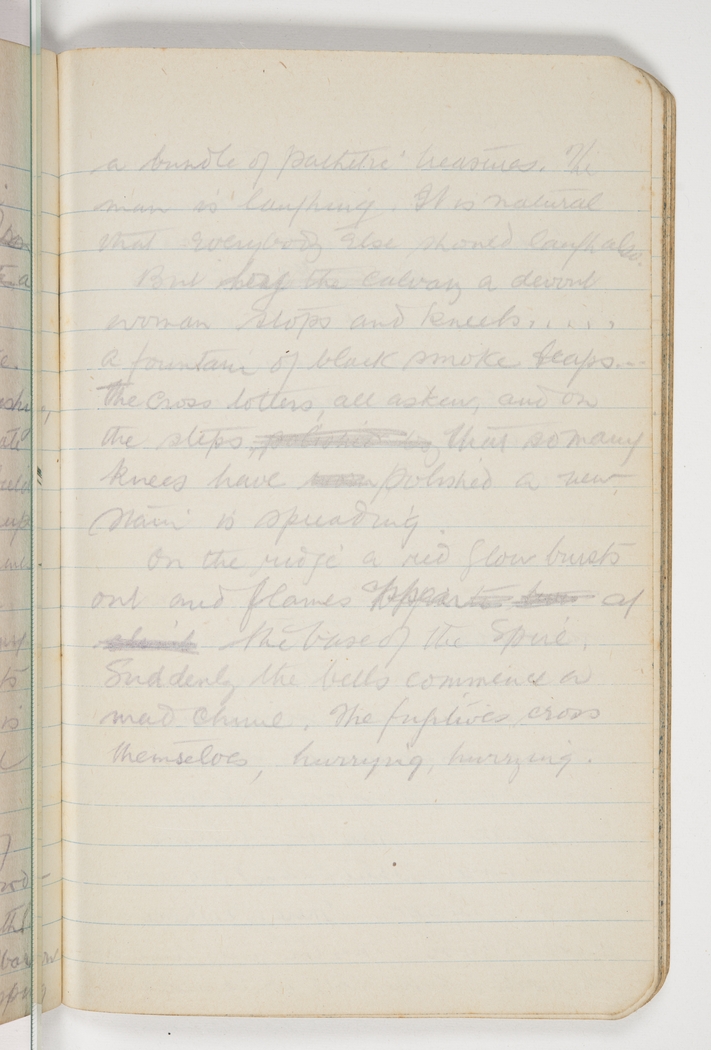 a bundle of pathetic treasures. The
man is laughing. It is natural
that everybody else should laugh also.
But the calvary a devout
woman stops and kneels.....
a fountain of black smoke leaps...
the cross totters, all askew, and on
the steps, polished by that so many
knees have worn polished a new
stain is spreading
On the ridge a red glow bursts
out and flames appear at
the base of the Spire.
Suddenly the bells commence a
mad chime. The fugitives cross
themselves, hurrying, hurrying.